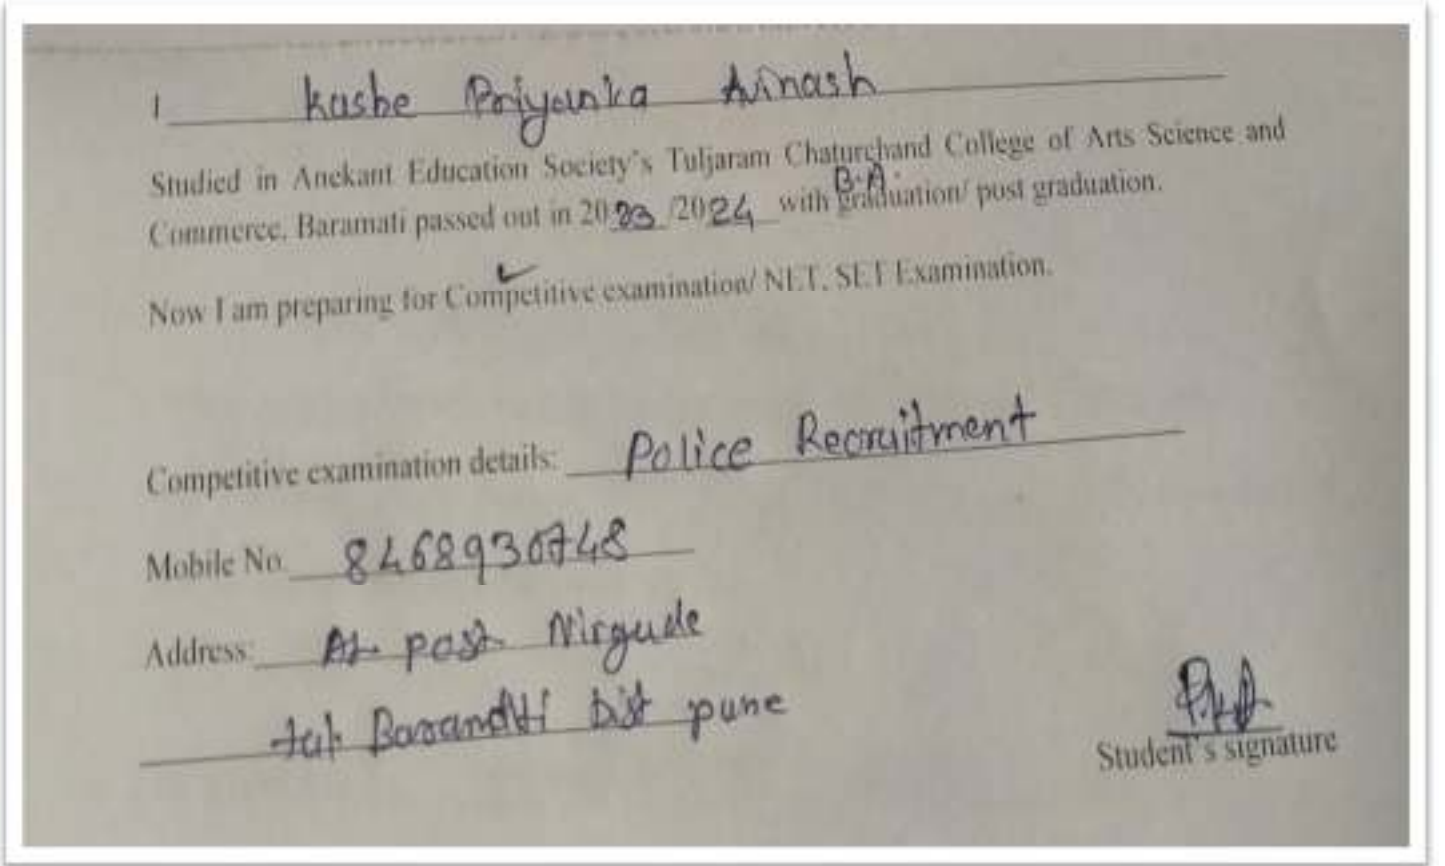 I Kasbe Priyanka Avinash
Studied in Anekant Education Society's Tuljaram Chaturchand College of Arts Science and
B.A.
Commerce, Baramati passed out in 2023 /2024 with graduation/ post graduation.
✓
Now I am preparing for Competitive examination/ NET, SET Examination.
Competitive examination details: Police Recruitment
Mobile No 8468930748
Address: At post Nirgude
tal Dist pune
Student's signature